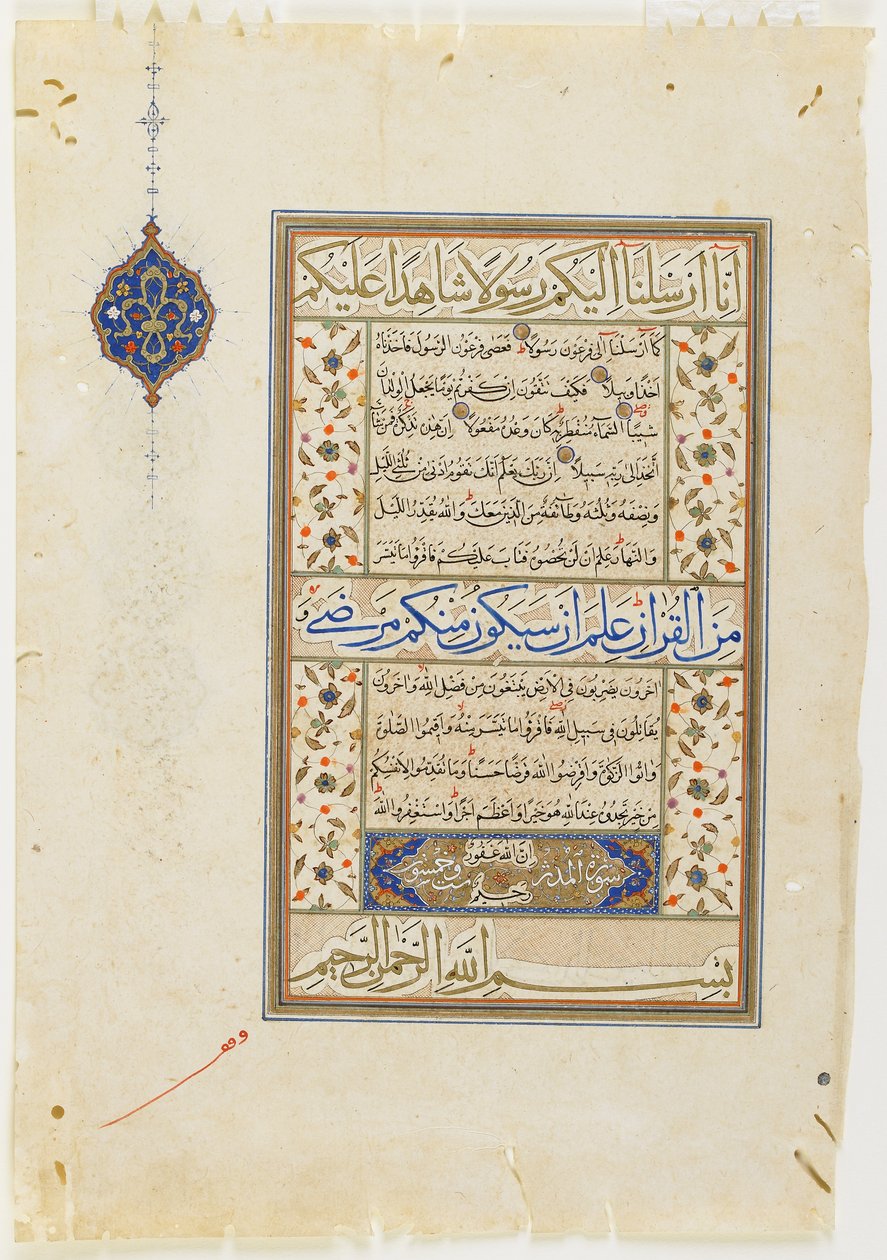 اِنَّا اَرْسَلْنَا اِلَيْكُمْ رَسُولًا شَاهِدًا عَلَيْكُمْ
كَمَا اَرْسَلْنَا اِلٰى فِرْعَوْنَ رَسُولًا فَعَصٰى فِرْعَوْنُ الرَّسُولَ فَاَخَذْنَاهُ
اَخْذًا وَبِيلًا فَكَيْفَ تَتَّقُونَ اِنْ كَفَرْتُمْ يَوْمًا يَجْعَلُ الْوِلْدَانَ
شِيبًا السَّمَآءُ مُنْفَطِرٌ بِهِ كَانَ وَعْدُهُ مَفْعُولًا اِنَّ هٰذِهِ تَذْكِرَةٌ فَمَنْ شَآءَ
اتَّخَذَ اِلٰى رَبِّهِ سَبِيلًا اِنَّ رَبَّكَ يَعْلَمُ اَنَّكَ تَقُومُ اَدْنٰى مِنْ ثُلُثَيِ اللَّيْلِ
وَنِصْفَهُ وَثُلُثَهُ وَطَآئِفَةٌ مِنَ الَّذِينَ مَعَكَ وَاللّٰهُ يُقَدِّرُ اللَّيْلَ
وَالنَّهَارَ عَلِمَ اَنْ لَنْ تُحْصُوهُ فَتَابَ عَلَيْكُمْ فَاقْرَؤُا مَا تَيَسَّرَ
مِنَ الْقُرْاٰنِ عَلِمَ اَنْ سَيَكُونُ مِنْكُمْ مَرْضٰى وَ
اٰخَرُونَ يَضْرِبُونَ فِي الْاَرْضِ يَبْتَغُونَ مِنْ فَضْلِ اللّٰهِ وَاٰخَرُونَ
يُقَاتِلُونَ فِي سَبِيلِ اللّٰهِ فَاقْرَؤُا مَا تَيَسَّرَ مِنْهُ وَاَقِيمُوا الصَّلٰوةَ
وَاٰتُوا الزَّكٰوةَ وَاَقْرِضُوا اللّٰهَ قَرْضًا حَسَنًا وَمَا تُقَدِّمُوا لِاَنْفُسِكُمْ
مِنْ خَيْرٍ تَجِدُوهُ عِنْدَ اللّٰهِ هُوَ خَيْرًا وَاَعْظَمَ اَجْرًا وَاسْتَغْفِرُوا اللّٰهَ
اِنَّ اللّٰهَ غَفُورٌ
سورة المدثر ست وخمسون
رَحِيمٌ
بِسْمِ اللّٰهِ الرَّحْمٰنِ الرَّحِيمِ
وقف